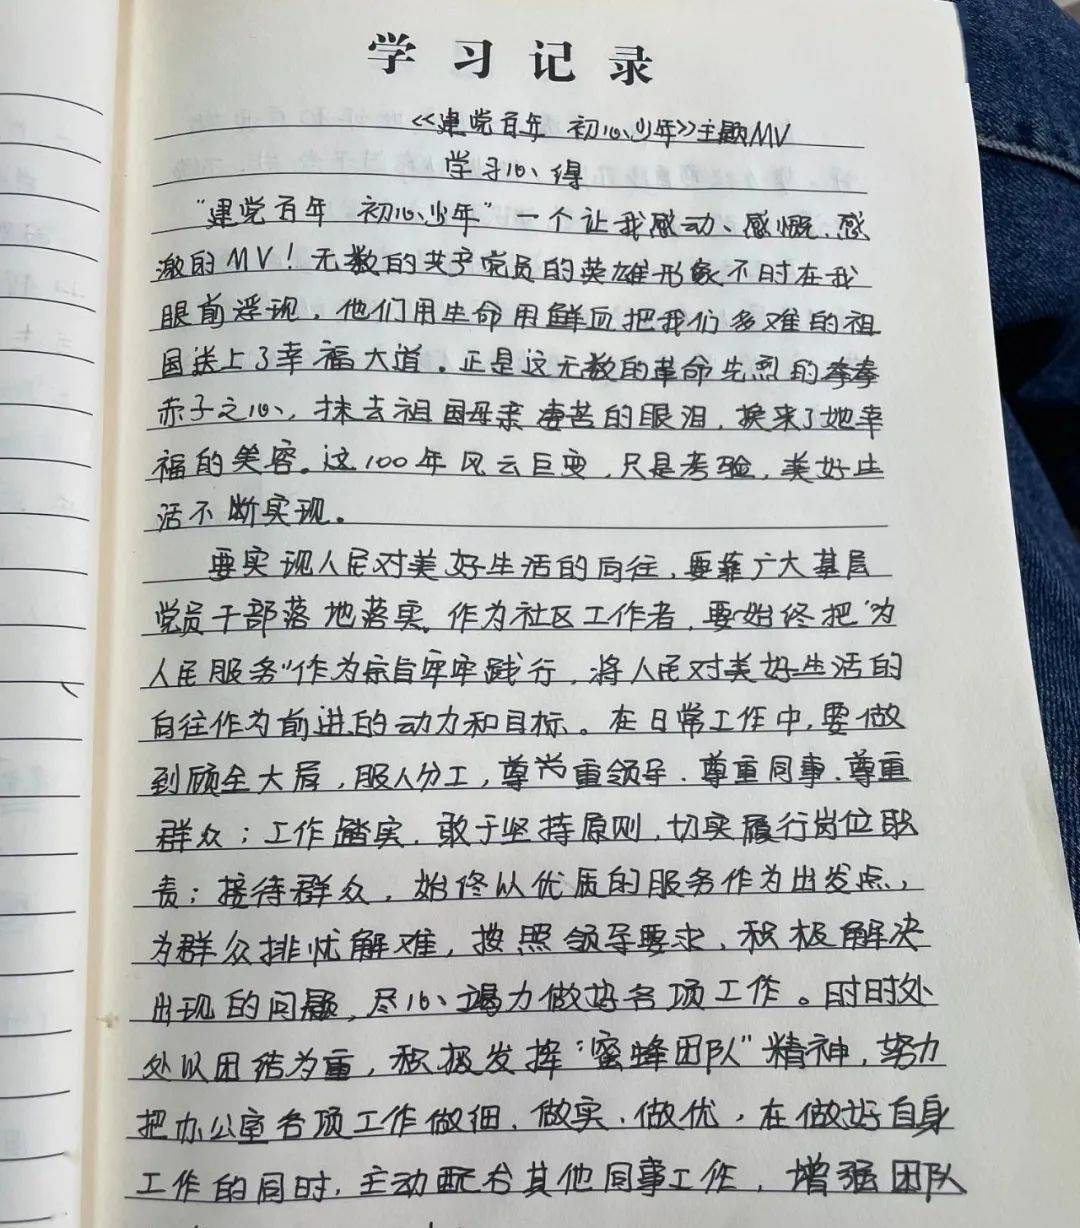 学习记录
《建党百年 初心少年》主题MV
学习心得
"建党百年 初心少年"一个让我感动、感慨、感
激的MV！无数的共产党员的英雄形象不时在我
眼前浮现，他们用生命用鲜血把我们多难的祖
国送上了幸福大道。正是这无数的革命先烈的拳拳
赤子之心、抹去祖国母亲凄苦的眼泪，换来了她幸
福的笑容。这100年风云巨变，只是考验，美好生
活不断实现。
要实现人民对美好生活的向往，要靠广大基层
党员干部落地落实。作为社区工作者，要始终把"为
人民服务"作为宗旨牢牢践行，将人民对美好生活的
向往作为前进的动力和目标。在日常工作中，要做
到顾全大局，服从分工，尊重领导、尊重同事、尊重
群众；工作踏实，敢于坚持原则，切实履行岗位职
责；接待群众，始终以优质的服务作为出发点，
为群众排忧解难，按照领导要求，积极解决
出现的问题，尽心竭力做好各项工作。时时处
处以团结为重，积极发挥"蜜蜂团队"精神，努力
把办公室各项工作做细、做实、做优，在做好自身
工作的同时，主动配合其他同事工作，增强团队